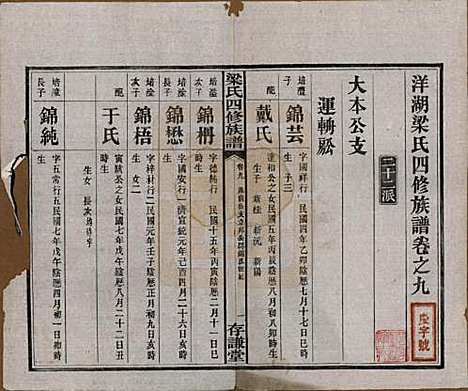 洋湖梁氏四修族譜卷之九
二十二派
大本公支
運轉公
培澧
子
錦芸
字國祥行一民國四年乙卯陰歷八月初三日卯時
生
配
戴氏
達和公之女民國五年丙辰陰歷十月十七日辰時
生子三
新桂
新沅
新陽
梁氏四修族譜
卷九
一
存謙堂
培滏
子
錦栅
字德柄行一民國十五年丙寅陰歷二月十一日戌
時生
培濬
長子
錦懋
字國安行一宣統元年己酉四月二十六日亥時生
培濬
次子
錦梧
字梓社行二民國四年乙卯陰歷正月初九日亥時
生
女二
配
于氏
寅賦公之女民國七年戊午陰歷八月二十二日丑
時生
生女
長子
錦純
字五常行五民國七年戊午陰歷四月初一日亥時
生
慶字號